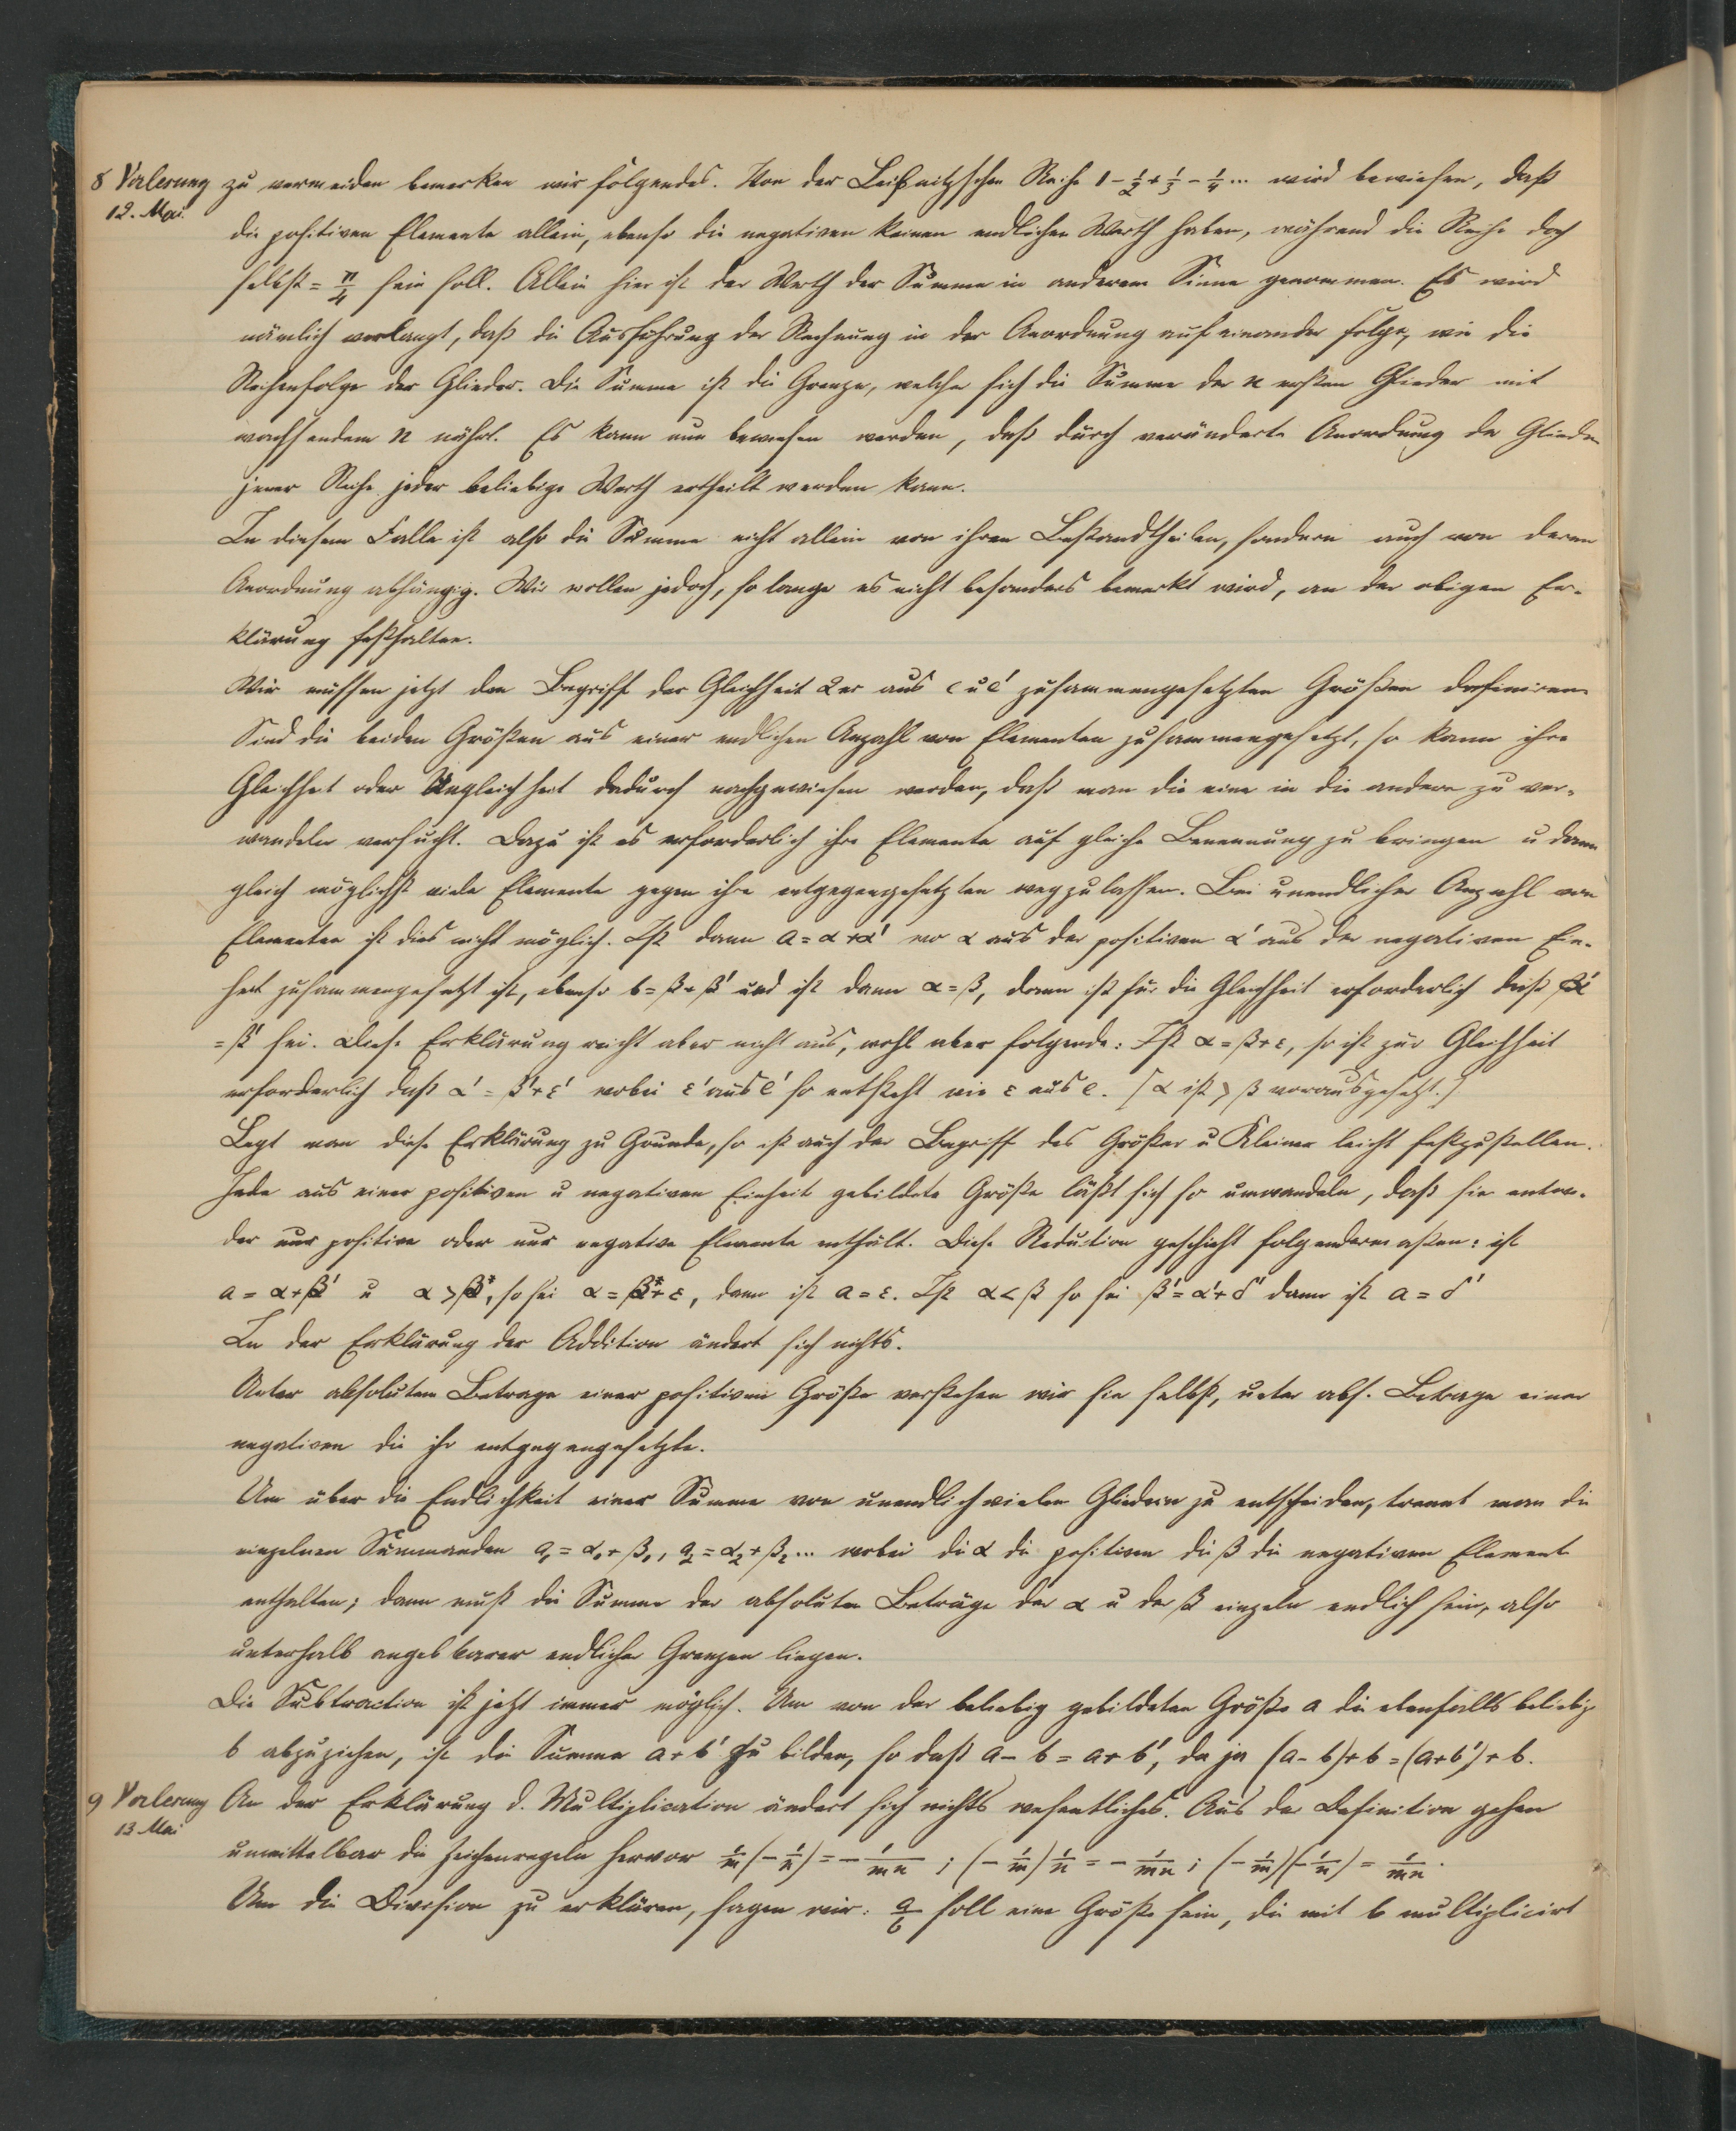 8 Vorlesung zu vermeiden bemerken wir folgendes. Von der Leibnitzschen Reihe 1 - 1/2 + 1/3 - 1/4 ... wird bewiesen, daß
12. Mai.
die positiven Elemente allein, ebenso die negativen keinen endlichen Werth haben, während die Reihe doch
selbst = π/4 sein soll. Allein hier ist der Werth der Summe in anderem Sinne genommen. Es wird
nämlich verlangt, daß die Ausführung der Rechnung in der Anordnung auf einander folge, wie die
Reihenfolge der Glieder. Die Summe ist die Grenze, welcher sich die Summe der n ersten Glieder mit
wachsendem n nähert. Es kann nun bewiesen werden, daß durch veränderte Anordnung der Glieder
jener Reihe jeder beliebige Werth ertheilt werden kann.
In diesem Falle ist also die Summe nicht allein von ihren Bestandtheilen, sondern auch von deren
Anordnung abhängig. Wir wollen jedoch, so lange es nicht besonders bemerkt wird, an der obigen Er-
klärung festhalten.
Wir müssen jetzt den Begriff der Gleichheit 2er aus e u e' zusammengesetzten Größen definiren
Sind die beiden Größen aus einer endlichen Anzahl von Elementen zusammengesetzt, so kann ihre
Gleichheit oder Ungleichheit dadurch nachgewiesen werden, daß man die eine in die andere zu ver-
wandeln versucht. Dazu ist es erforderlich ihre Elemente auf gleiche Benennung zu bringen u dann
gleich möglichst viele Elemente gegen ihre entgegengesetzten wegzulassen. Bei unendlicher Anzahl von
Elementen ist dies nicht möglich. Ist dann a = α + α' wo α aus der positiven α' aus der negativen Ein-
heit zusammengesetzt ist, ebenso b = β + β' und ist dann α = β, dann ist für die Gleichheit erforderlich daß α'
= β' sei. Diese Erklärung reicht aber nicht aus, wohl aber folgende: Ist α = β + ε, so ist zur Gleichheit
erforderlich daß α' = β' + ε' wobei ε' aus e' so entsteht wie ε aus e. [α ist > β vorausgesetzt.]
Legt man diese Erklärung zu Grunde, so ist auch der Begriff des Größer u Kleiner leicht festzustellen.
Jede aus einer positiven u negativen Einheit gebildete Größe läßt sich so umwandeln, daß sie entwe-
der nur positive oder nur negative Elemente enthält. Diese Reduction geschieht folgendermaßen: ist
a = α + β' u α > β, so sei α = β + ε, dann ist a = ε. Ist α < β so sei β' = α' + δ' dann ist a = δ'
In der Erklärung der Addition ändert sich nichts.
Unter absolutem Betrage einer positiven Größe verstehen wir sie selbst, unter abs. Betrage einer
negativen die ihr entgegengesetzte.
Um über die Endlichkeit einer Summe von unendlich vielen Gliedern zu entscheiden, trennt man die
einzelnen Summanden a₁ = α₁ + β₁, a₂ = α₂ + β₂ ... wobei die α die positiven die β die negativen Element
enthalten; dann muß die Summe der absoluten Beträge der α u der β einzeln endlich sein, also
unterhalb angebbarer endlicher Grenzen liegen.
Die Subtraction ist jetzt immer möglich. Um von der beliebig gebildeten Größe a die ebenfalls beliebig
b abzuziehen, ist die Summe a + b' zu bilden, so daß a - b = a + b', da ja (a - b) + b = (a + b') + b.
9 Vorlesung An der Erklärung d. Multiplication ändert sich nichts wesentliches. Aus der Definition gehen
13 Mai
unmittelbar die Zeichenregeln hervor 1/m (- 1/n) = - 1/mn ; (- 1/m) 1/n = - 1/mn ; (- 1/m)(- 1/n) = 1/mn.
Um die Division zu erklären, sagen wir: a/b soll eine Größe sein, die mit b multiplicirt